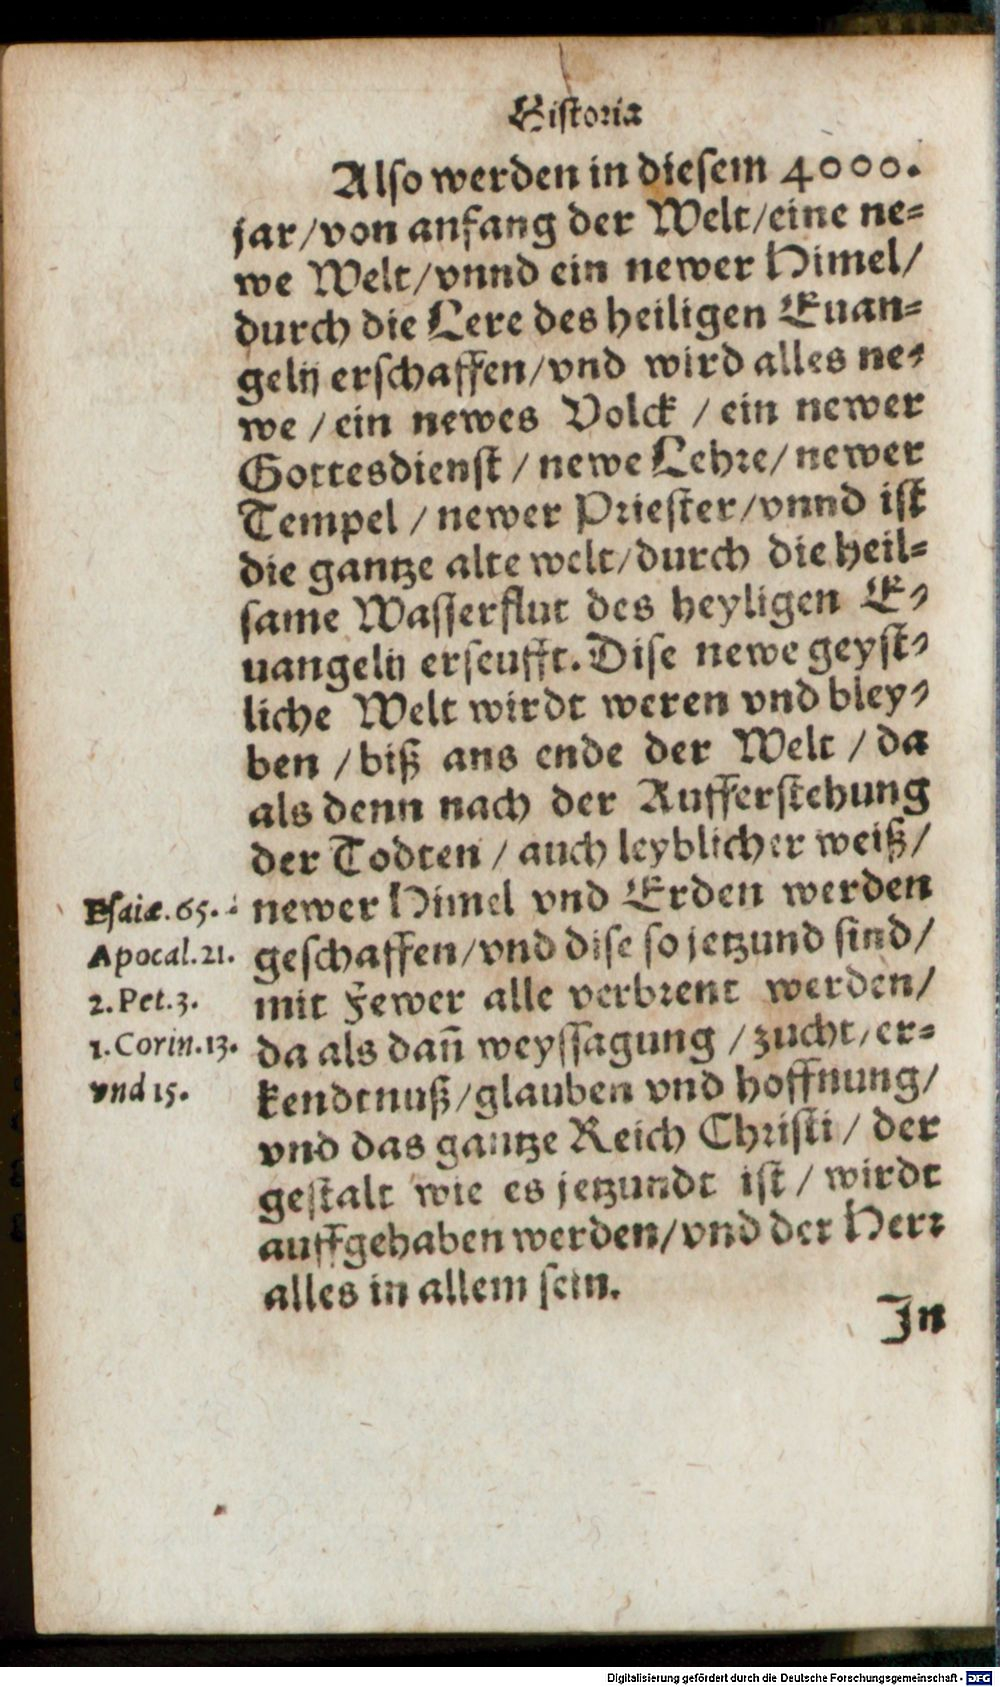 Historia
Also werden in diesem 4000.
jar/von anfang der Welt/eine ne-
we Welt/vnnd ein newer Himel/
durch die Lere des heiligen Euan-
gelij erschaffen/vnd wird alles ne-
we / ein newes Volck / ein newer
Gottesdienst / newe Lehre/ newer
Tempel / newer Priester/vnnd ist
die gantze alte welt/durch die heil-
same Wasserflut des heyligen E-
uangelij erseufft. Dise newe geyst-
liche Welt wirdt weren vnd bley-
ben / biß ans ende der Welt / da
als denn nach der Aufferstehung
der Todten / auch leyblicher weiß/
newer Himel vnd Erden werden
geschaffen/vnd dise so jetzund sind/
mit Fewer alle verbrent werden/
da als dañ weyssagung / zucht/er-
kendtnuß/glauben vnd hoffnung/
vnd das gantze Reich Christi / der
gestalt wie es jetzundt ist / wirdt
auffgehaben werden/vnd der Herr
alles in allem sein.
Esaiæ.65.
Apocal.21.
2.Pet.3.
1.Corin.13.
vnd 15.
In
Digitalisierung gefördert durch die Deutsche Forschungsgemeinschaft - DFG